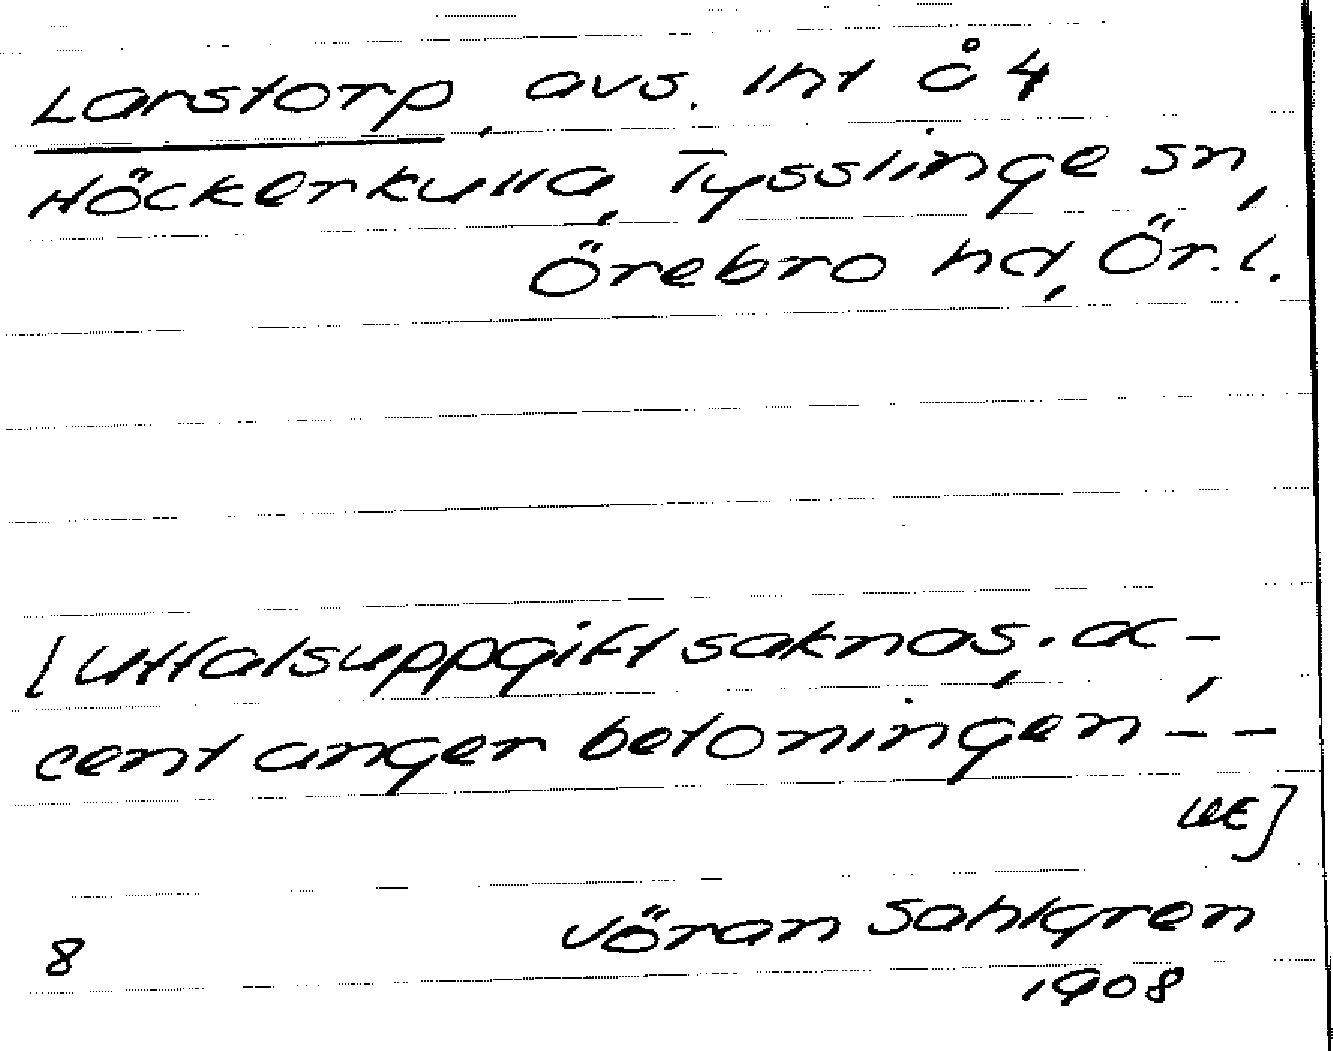 Larstorp, avs. int å 4
Höckerkulla, Tysslinge sn,
Örebro hd, Ör. l.
[Uttalsuppgift saknas, ac-
cent anger betoningen - -
Jöran Sahlgren
8
1908